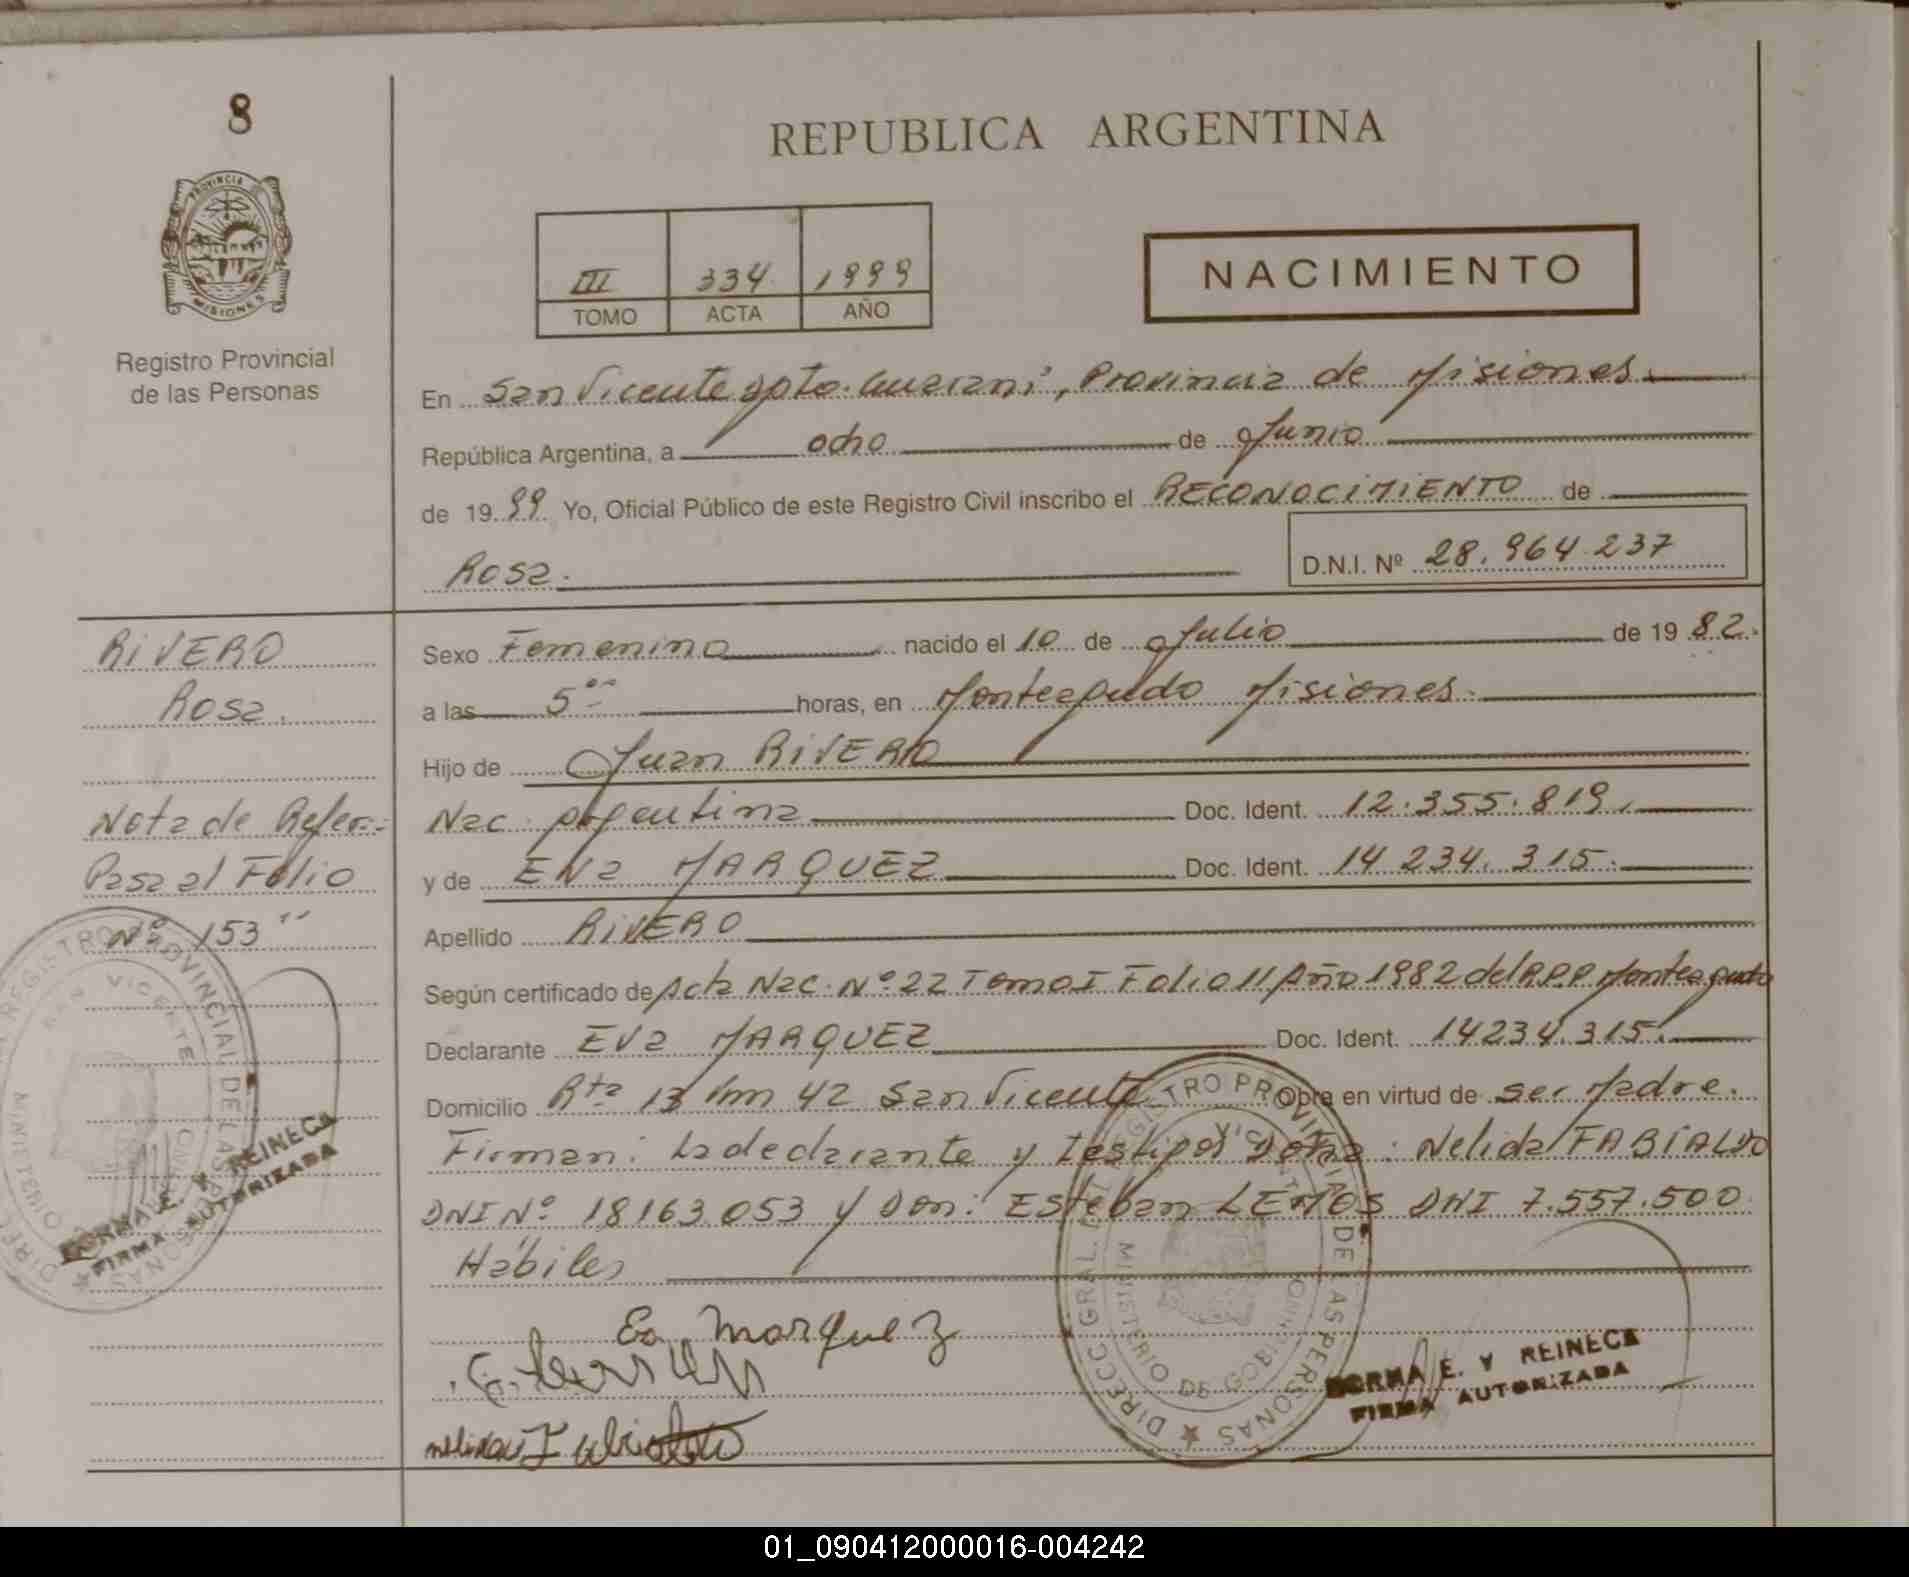 8
REPUBLICA ARGENTINA
PROVINCIA DE
MISIONES
III 334 1999
TOMO ACTA AÑO
NACIMIENTO
Registro Provincial
de las Personas
En San Vicente Dpto. Guarani, Provincia de Misiones.
República Argentina, a ocho de Junio
de 1999 Yo, Oficial Público de este Registro Civil inscribo el RECONOCIMIENTO de
Rosa. D.N.I. Nº 28.964.237
RIVERO
Rosa.
Nota de Refer.:
Pasa al Folio
Nº 153"
Sexo Femenino nacido el 10 de Julio de 1982.
a las 5 horas, en Monteagudo Misiones.
Hijo de Juan RIVERO
Nac. Argentina Doc. Ident. 12.355.819.
y de EVA MARQUEZ Doc. Ident. 14 234.315.
Apellido RIVERO
Según certificado de Acta Nac. Nº 22 Tomo I Folio 11 Año 1982 del R.P.P Monteagudo
Declarante EVA MARQUEZ Doc. Ident. 14234.315.
Domicilio Rta 13 km 42 San Vicente Obra en virtud de ser Madre.
Firman: La declarante y testigos Doña: Nelida FABIALDO
DNI Nº 18163.053 y Don: Esteban LEMOS DNI 7.557.500
Hábiles
Ea Marquez
nelida
DIRECC GRAL. DEL REGISTRO PROVINCIAL DE LAS PERSONAS
SAN VICENTE
MINISTERIO DE GOBIERNO
NORMA E. V REINECA
FIRMA AUTORIZADA
DIRECC GRAL. DEL REGISTRO PROVINCIAL DE LAS PERSONAS
MINISTERIO DE GOBIERNO
NORMA E. V REINECA
FIRMA AUTORIZADA
01_090412000016-004242